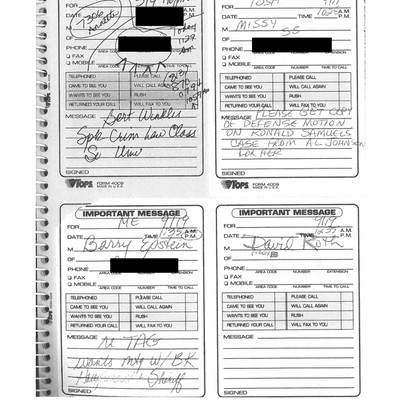 1306
DATE 9/9
A.M.
P.M.
M
PHONE
AREA CODE NUMBER EXTENSION
FAX
MOBILE
TELEPHONED PLEASE CALL
CAME TO SEE YOU WILL CALL AGAIN
WANTS TO SEE YOU RUSH
RETURNED YOUR CALL WILL FAX TO YOU
MESSAGE Bert Winkler
Spk Crim Law Class
SIGNED
TOPS FORM 4009
MADE IN U.S.A.
FOR TOSH
DATE TIME A.M.
P.M.
M MISSY
SS
OF
PHONE
AREA CODE NUMBER EXTENSION
FAX
MOBILE
TELEPHONED PLEASE CALL
CAME TO SEE YOU WILL CALL AGAIN
WANTS TO SEE YOU RUSH
RETURNED YOUR CALL WILL FAX TO YOU
MESSAGE PLEASE GET COPY
OF DEFENSE MOTION
ON RONALD SAMUELS
CASE FROM AL JOHNSON
FOR HER
SIGNED
TOPS FORM 4009
MADE IN U.S.A.
IMPORTANT MESSAGE
FOR ME
DATE 9/19 TIME 1:35 A.M.
P.M.
M Barry Epstein
OF
PHONE
AREA CODE NUMBER EXTENSION
FAX
MOBILE
TELEPHONED PLEASE CALL
CAME TO SEE YOU WILL CALL AGAIN
WANTS TO SEE YOU RUSH
RETURNED YOUR CALL WILL FAX TO YOU
MESSAGE
TAG
wants mtg w/ BK
Sheriff
SIGNED
IMPORTANT MESSAGE
FOR
DATE 9/19 TIME 12:35 A.M.
P.M.
M David Roth
OF
PHONE
AREA CODE NUMBER EXTENSION
FAX
MOBILE
TELEPHONED PLEASE CALL
CAME TO SEE YOU WILL CALL AGAIN
WANTS TO SEE YOU RUSH
RETURNED YOUR CALL WILL FAX TO YOU
MESSAGE
SIGNED